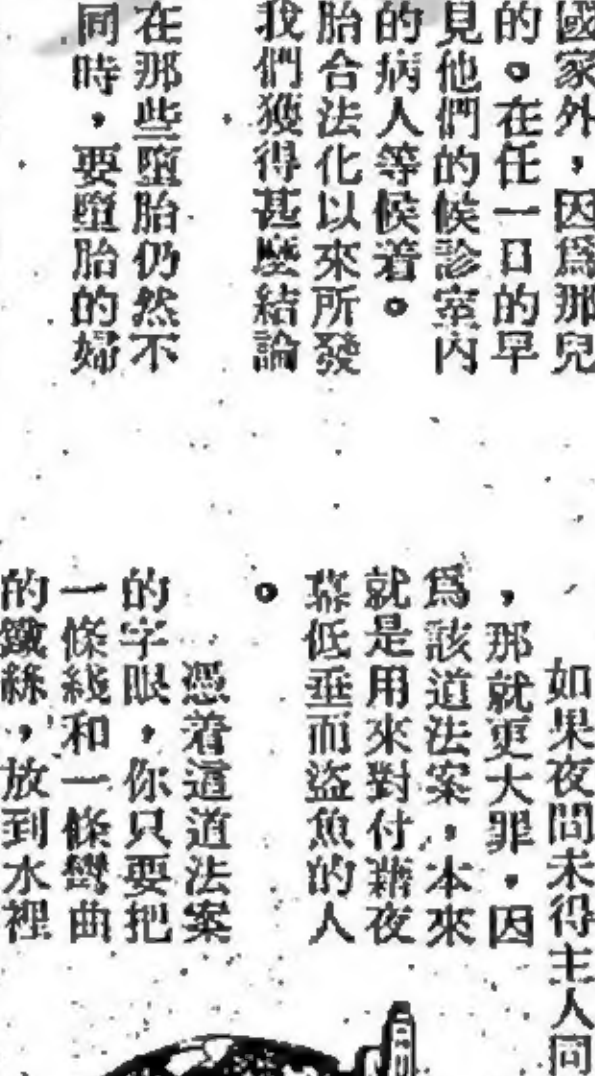 國家外，因爲那兒
的。在任一日的早
見他們的候診室內
的病人等候着。
胎合法化以來所發
我們獲得甚麼結論
在那些墮胎仍然不
同時，要墮胎的婦
如果夜間未得主人同
，那就更大罪，因
爲該道法案，本來
就是用來對付藉夜
幕低垂而盜魚的人
。
憑着這道法案
的字眼，你只要把
一條綫和一條彎曲
的鐵絲，放到水裡